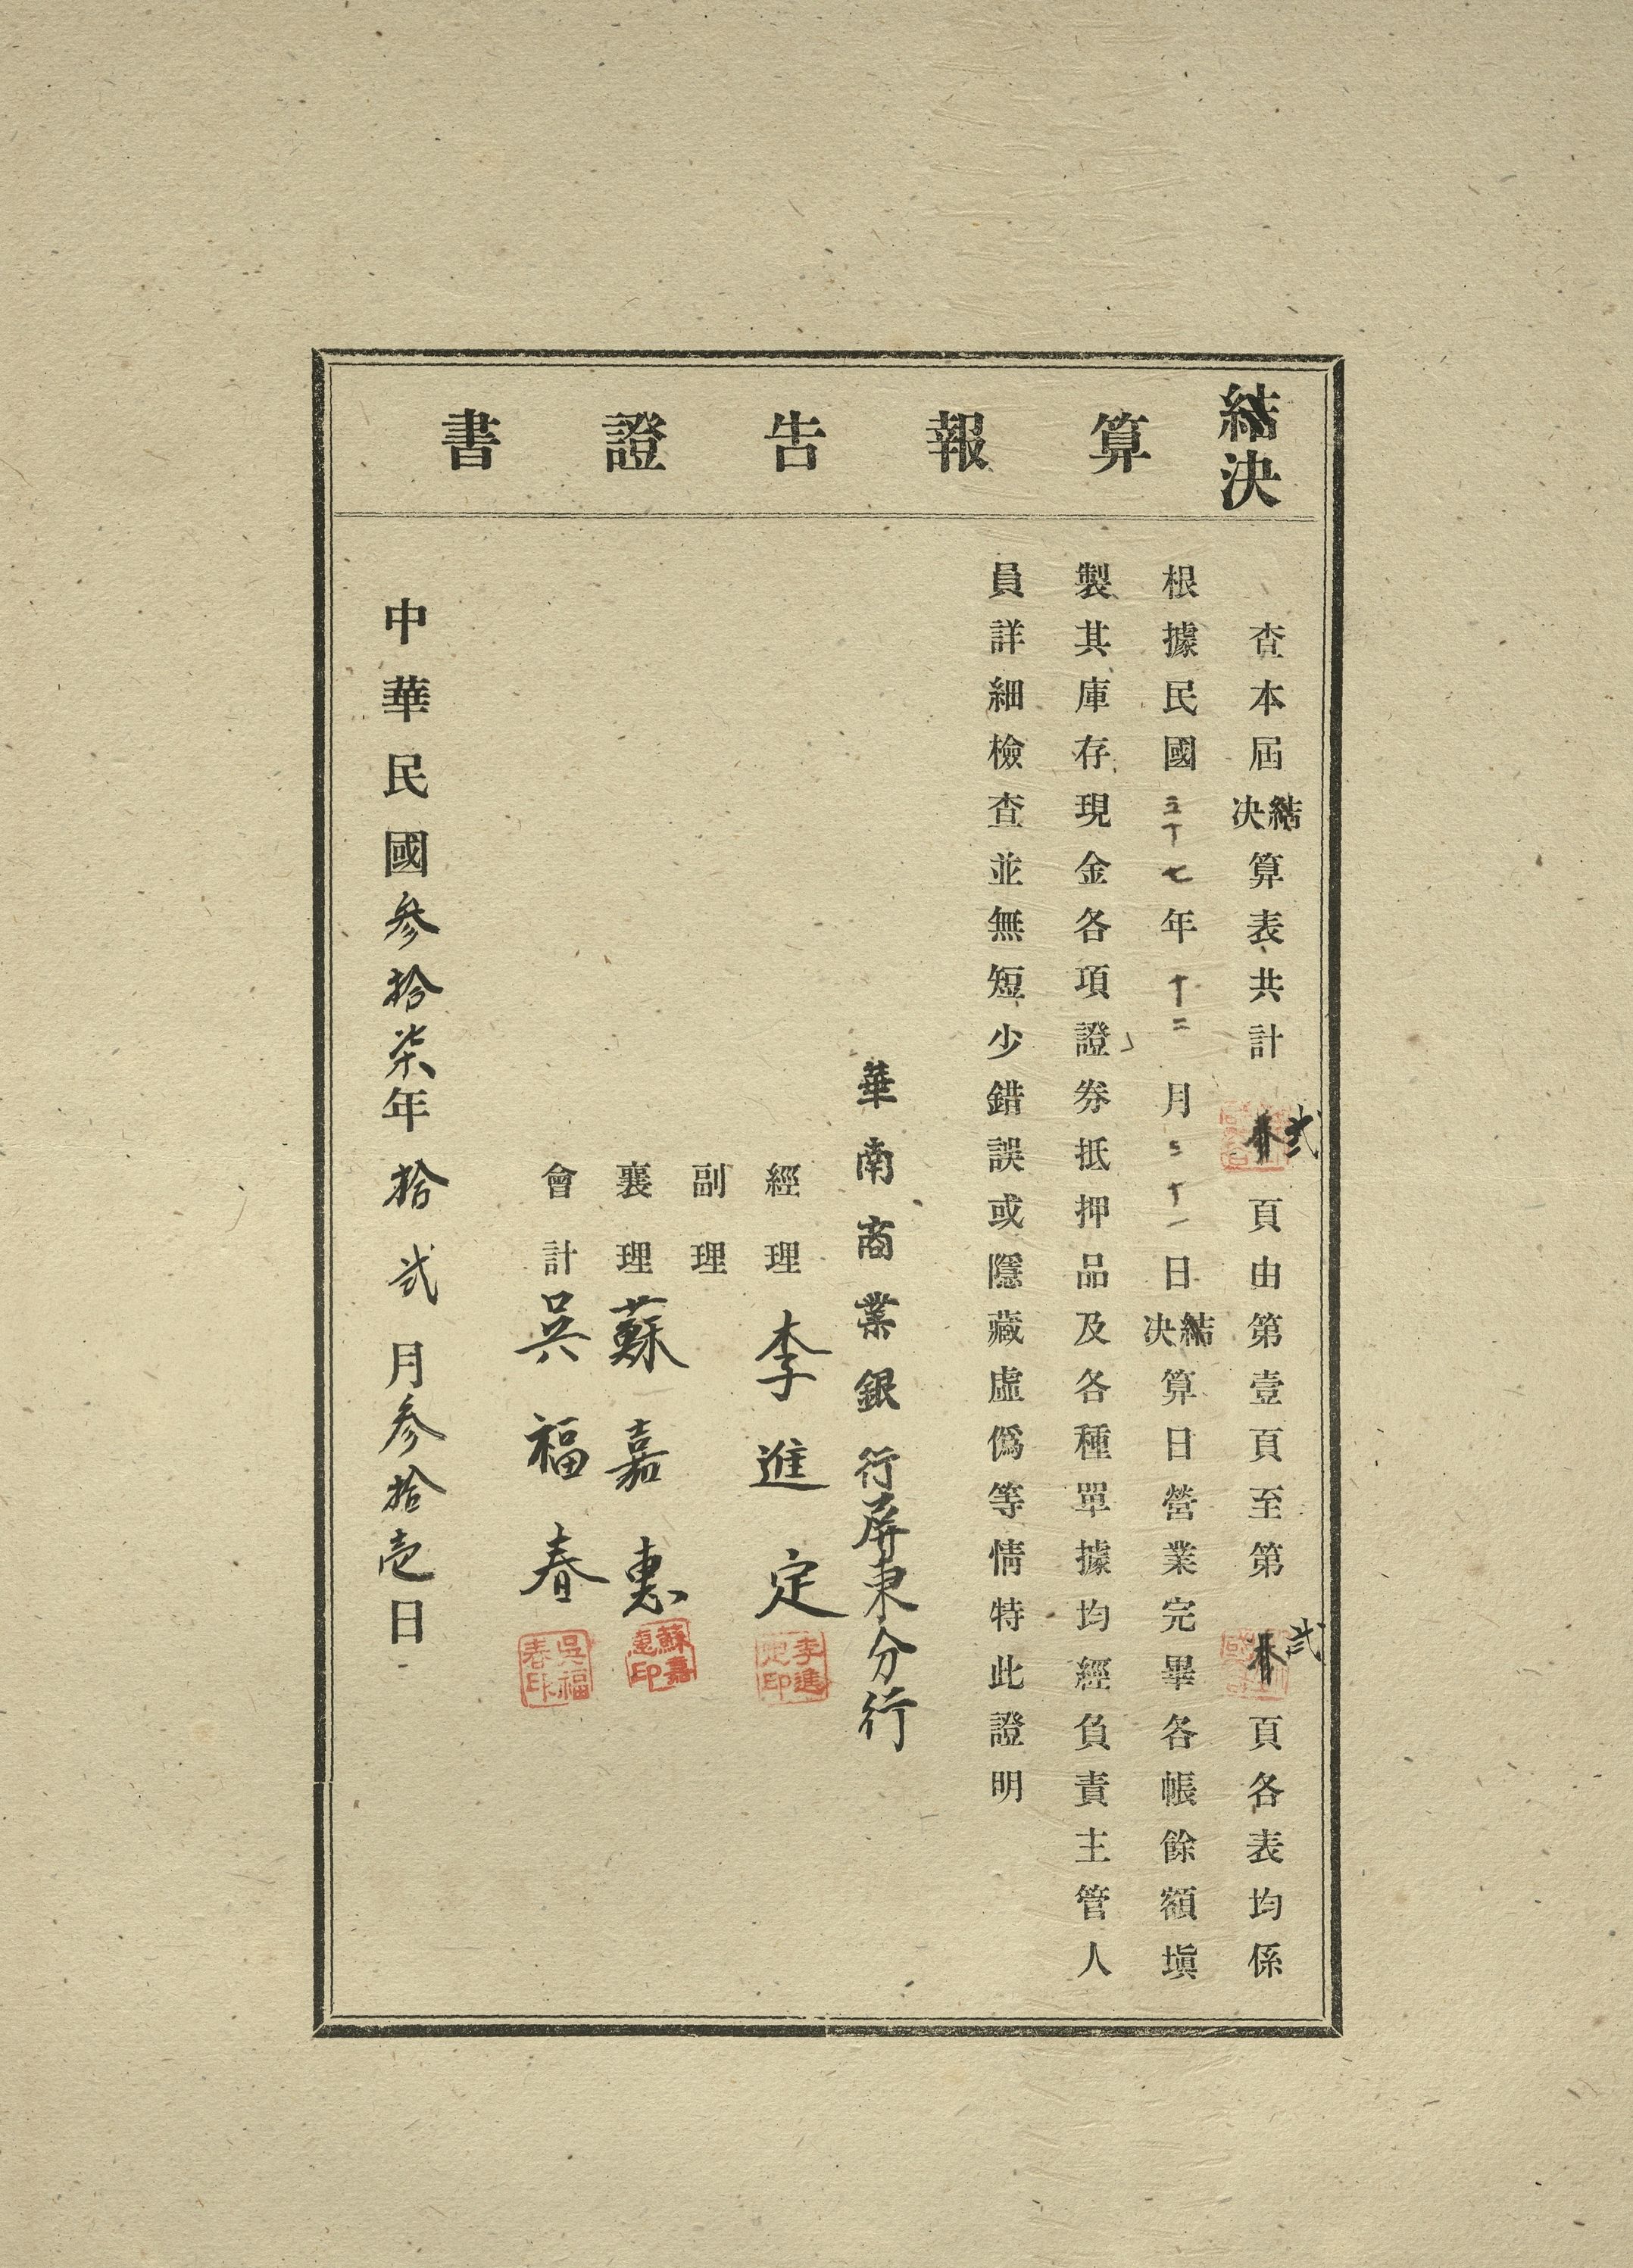 結決算報告證書
查本屆結決算表共計弐頁由第壹頁至第弐頁各表均係
根據民國三十七年十二月三十一日結決算日營業完畢各帳餘額塡
製其庫存現金各項證券抵押品及各種單據均經負責主管人
員詳細檢查並無短少錯誤或隱藏虛僞等情特此證明
華南商業銀行屏東分行
經理 李進定
李進定印
副理
襄理 蘇嘉惠
蘇嘉惠印
會計 吳福春
吳福春印
中華民國參拾柒年拾弐月參拾壱日